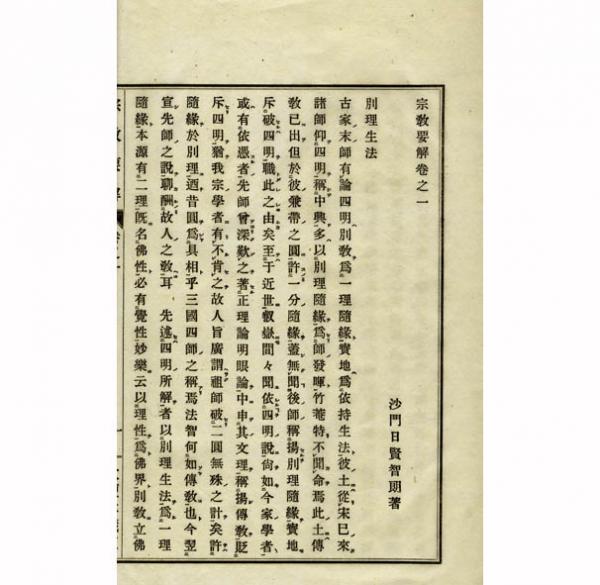 宗教要解卷之一
沙門日賢智朗著
別理生法
古家末師有論四明別敎爲一理隨緣實地爲依持生法彼土從宋已來
諸師仰四明稱中興多以別理隨緣爲師發暉竹菴特不聞命焉此土傳
敎已出但於彼兼帶之圓許一分隨緣蓋無聞後師稱揚別理隨緣實地
斥破四明職此之由矣至于近世叡嶽間々聞依四明說尙如今家學者
或有依憑者先師曾深歎之著正理論明眼論中申其文理稱揚傳敎貶
斥四明猶我宗學者有不肯之故人旨廣謂祖師破二圓無殊之計矣許
隨緣於別理迺昔圓爲具相乎三國四師之稱焉法智何如傳敎也今翌
宣先師之說聊酬故人之敎耳 先述四明所解者以別理生法爲一理
隨緣本源有二理旣名佛性必有覺性妙樂云以理性爲佛界別敎立佛